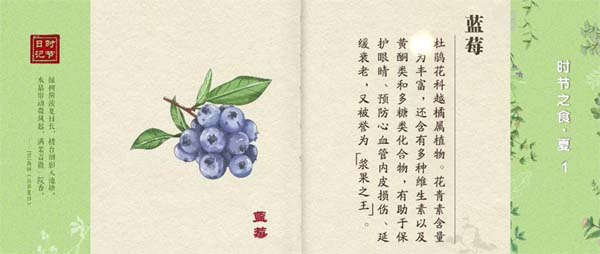 时节之食·夏 1
蓝莓
杜鹃花科越橘属植物。花青素含量
为丰富，还含有多种维生素以及
黄酮类和多糖类化合物，有助于保
护眼睛、预防心血管内皮损伤、延
缓衰老，又被誉为「浆果之王」。
蓝莓
时节
日记
绿树阴浓夏日长，楼台倒影入池塘。
水晶帘动微风起，满架蔷薇一院香。